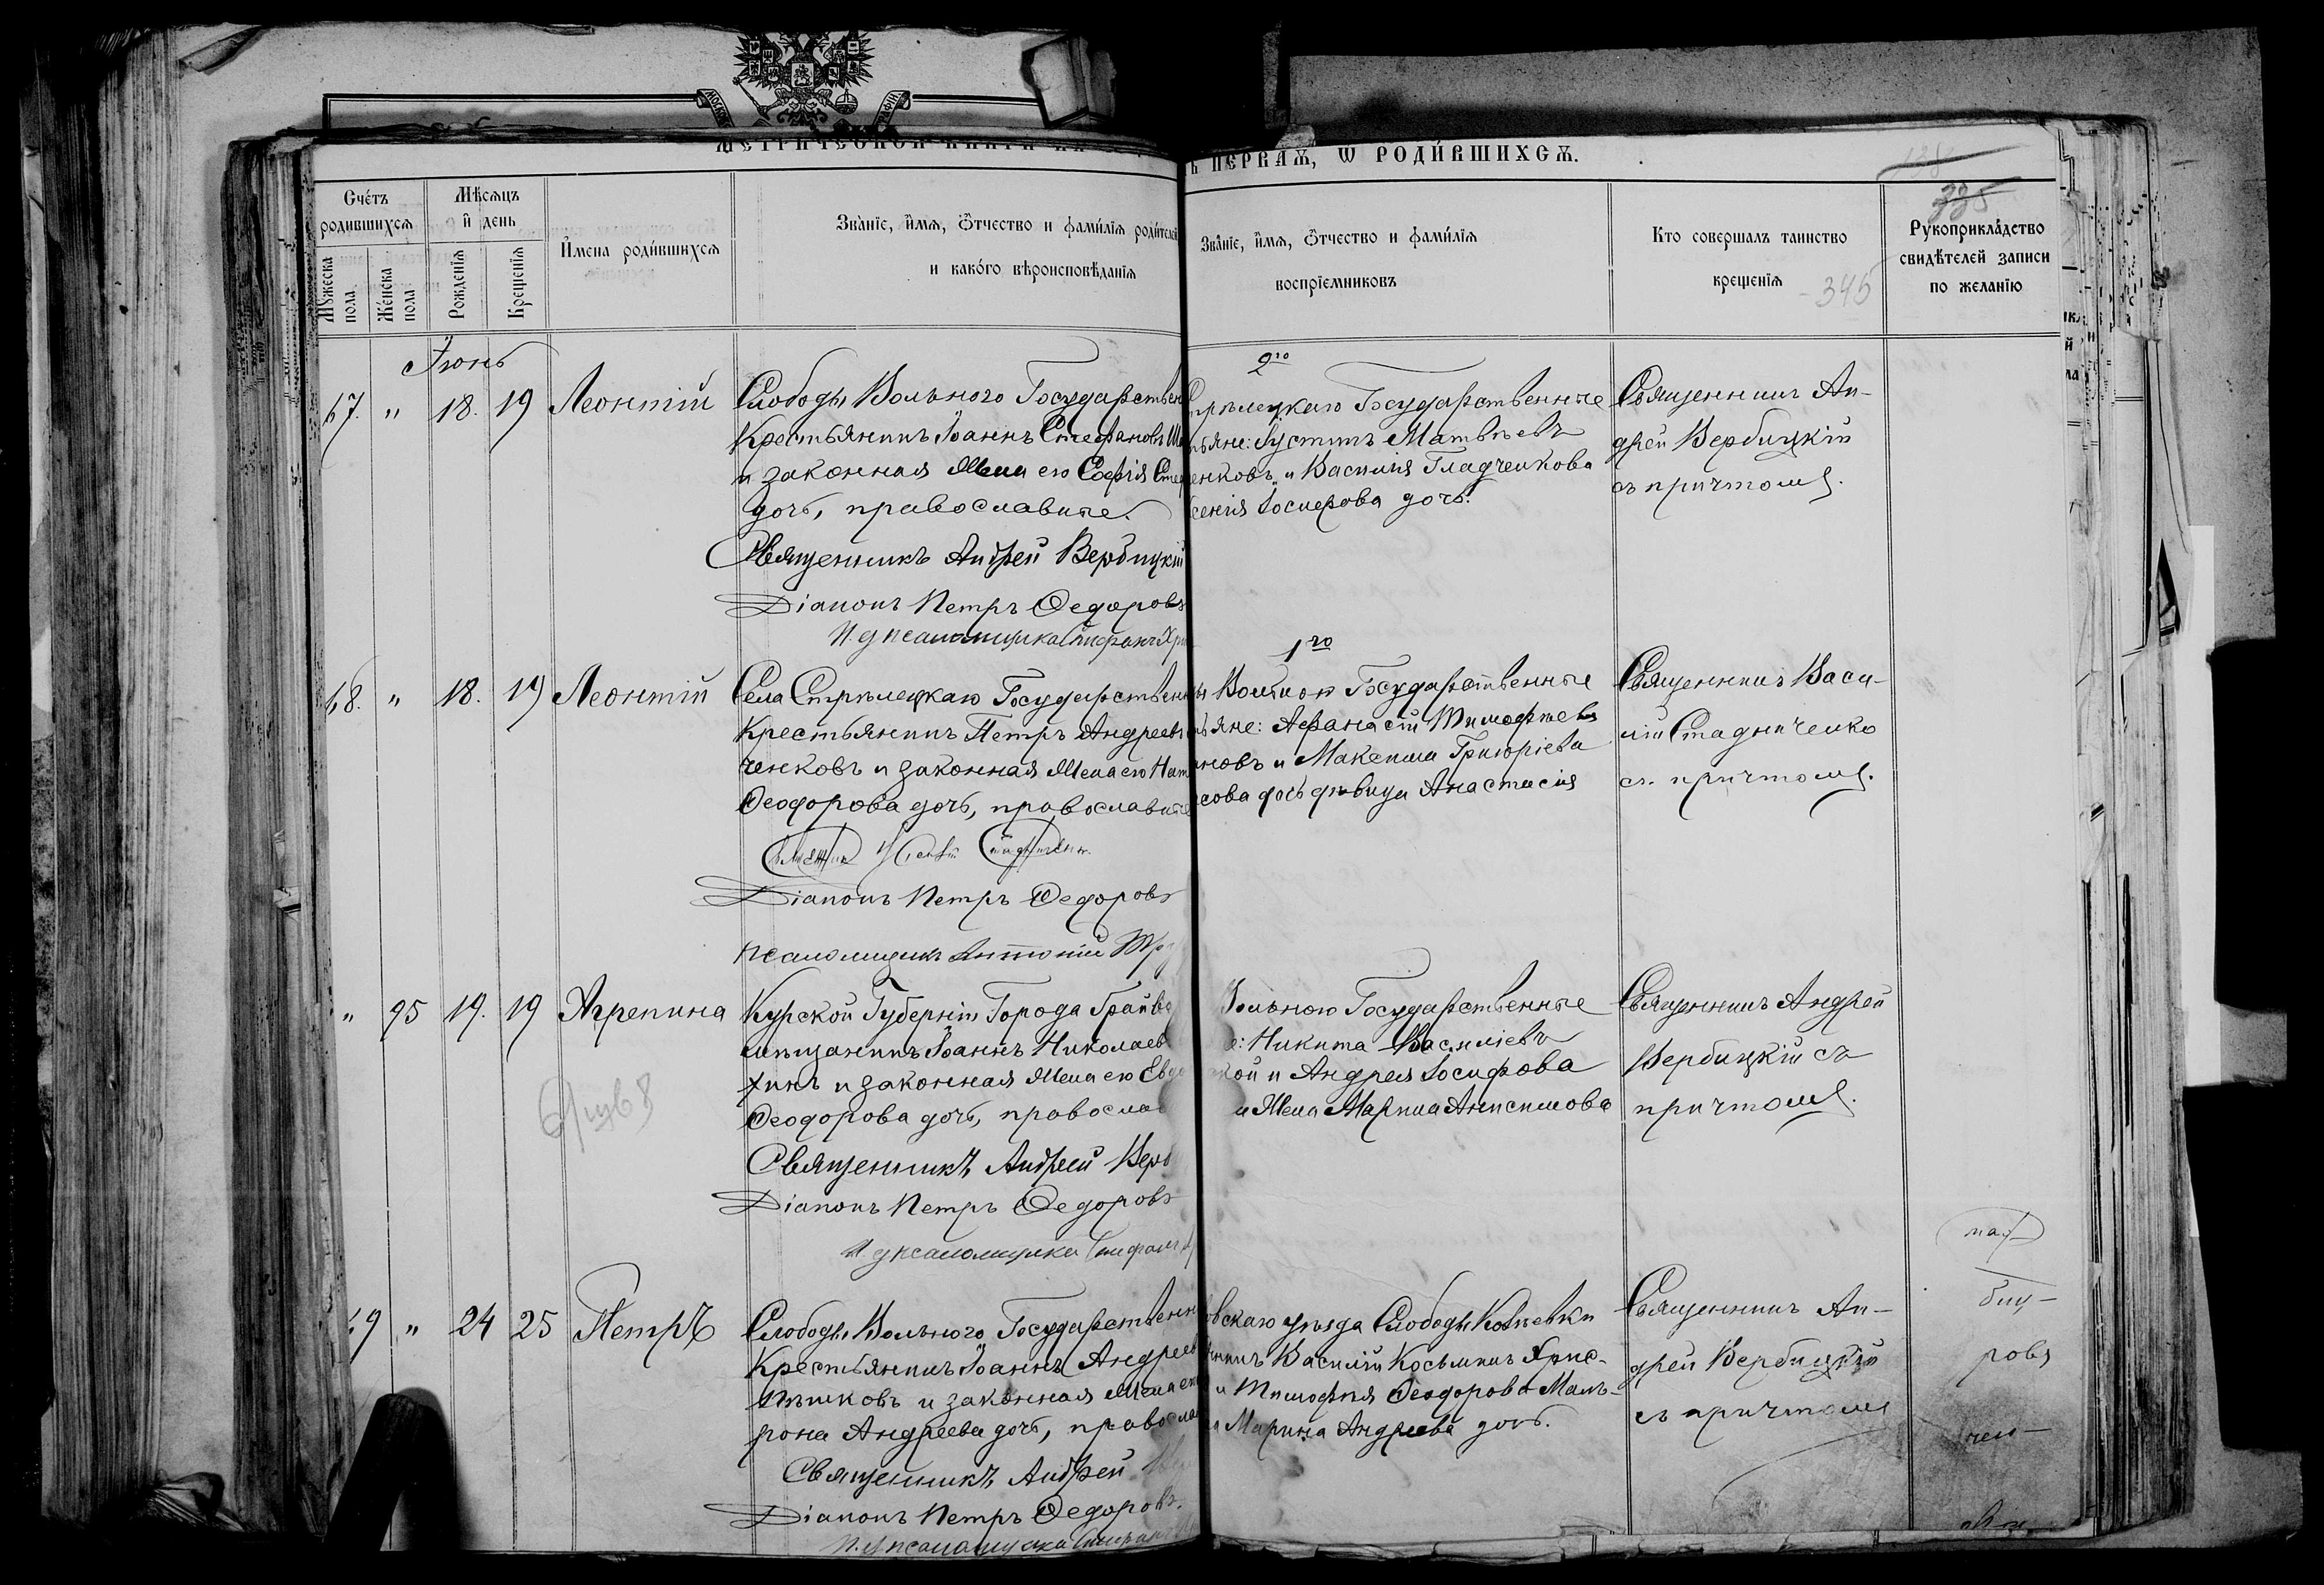 МЕТРИЧЕСКОЙ КНИГИ
Ь ПЕРВАѦ, Ѡ РОДИ́ВШИХСѦ.
335
Счéтъ родившихсѧ
Мѣсѧцъ и день
Мꙋжеска пола
Женска пола
Рожденїѧ
Крещенїѧ
Имена роди́вшихсѧ
Звáнїе, и́мѧ, ѻ́тчество и фами́лїѧ роди́телей
и какóго вѣроисповѣ́данїѧ
Звáнїе, и́мѧ, ѻ́тчество и фами́лїѧ
воспрїе́мниковъ
Кто совершалъ таинство
крещенїѧ
- 345
Рꙋкоприклáдство
свидѣ́телей записи
по желанїю
Іюнь
67. " 18. 19 Леонтій
Слободы Вольного Государствен
Крестьянинъ Іоаннъ Стефановъ
и законная Жена его Софія
дочь, православные.
Священникъ Андрей Вербицкій
Діаконъ Петръ Федоровъ
И. д псаломщика Стефанъ
2го
Стрѣлецкаго Государственные
ьяне: Іустинъ Матвѣевъ
енковъ и Василія Гладченкова
сенія Іосифова дочь.
Священникъ Ан-
дрей Вербицкій
съ причтомъ.
68. " 18. 19 Леонтій
Села Стрѣлецкаго Государствен
Крестьянинъ Петръ Андреевъ
ченковъ и законная Жена его Нат
Ѳеодорова дочь, православные
Діаконъ Петръ Федоровъ
псаломщикъ Антоній
1го
Государственные
ьяне: Афанасій Тимофѣевъ
новъ и Максима Григоріева
сова дочь дѣвица Анастасія
Священникъ Васи-
лій Стадниченко
съ причтомъ.
" 95 19. 19 Агрепина
Курской Губерніи Города Грайво
мѣщанинъ Іоаннъ Николаев
хинъ и законная Жена его Евдо
Ѳеодорова дочь, православ
Священникъ Андрей Верб
Діаконъ Петръ Федоровъ
И. д псаломщика Стефанъ
Вольного Государственные
е: Никита Василіевъ
кой и Андрея Іосифова
а Жена Марина Анисимова
Священникъ Андрей
Вербицкій съ
причтомъ.
69 " 24 25 Петръ
Слободы Вольного Государственн
Крестьянинъ Іоаннъ Андреев
и законная Жена его
рона Андреева дочь, правосла
Священникъ Андрей
Діаконъ Петръ Федоровъ.
И. д псаломщика Стефанъ
овскаго уѣзда Слободы
Василій Косьминъ
и Тимофѣя Ѳеодорова
а Марина Андреева дочь.
Священникъ Ан-
дрей Вербицкій
съ причтомъ
биц-
ровъ